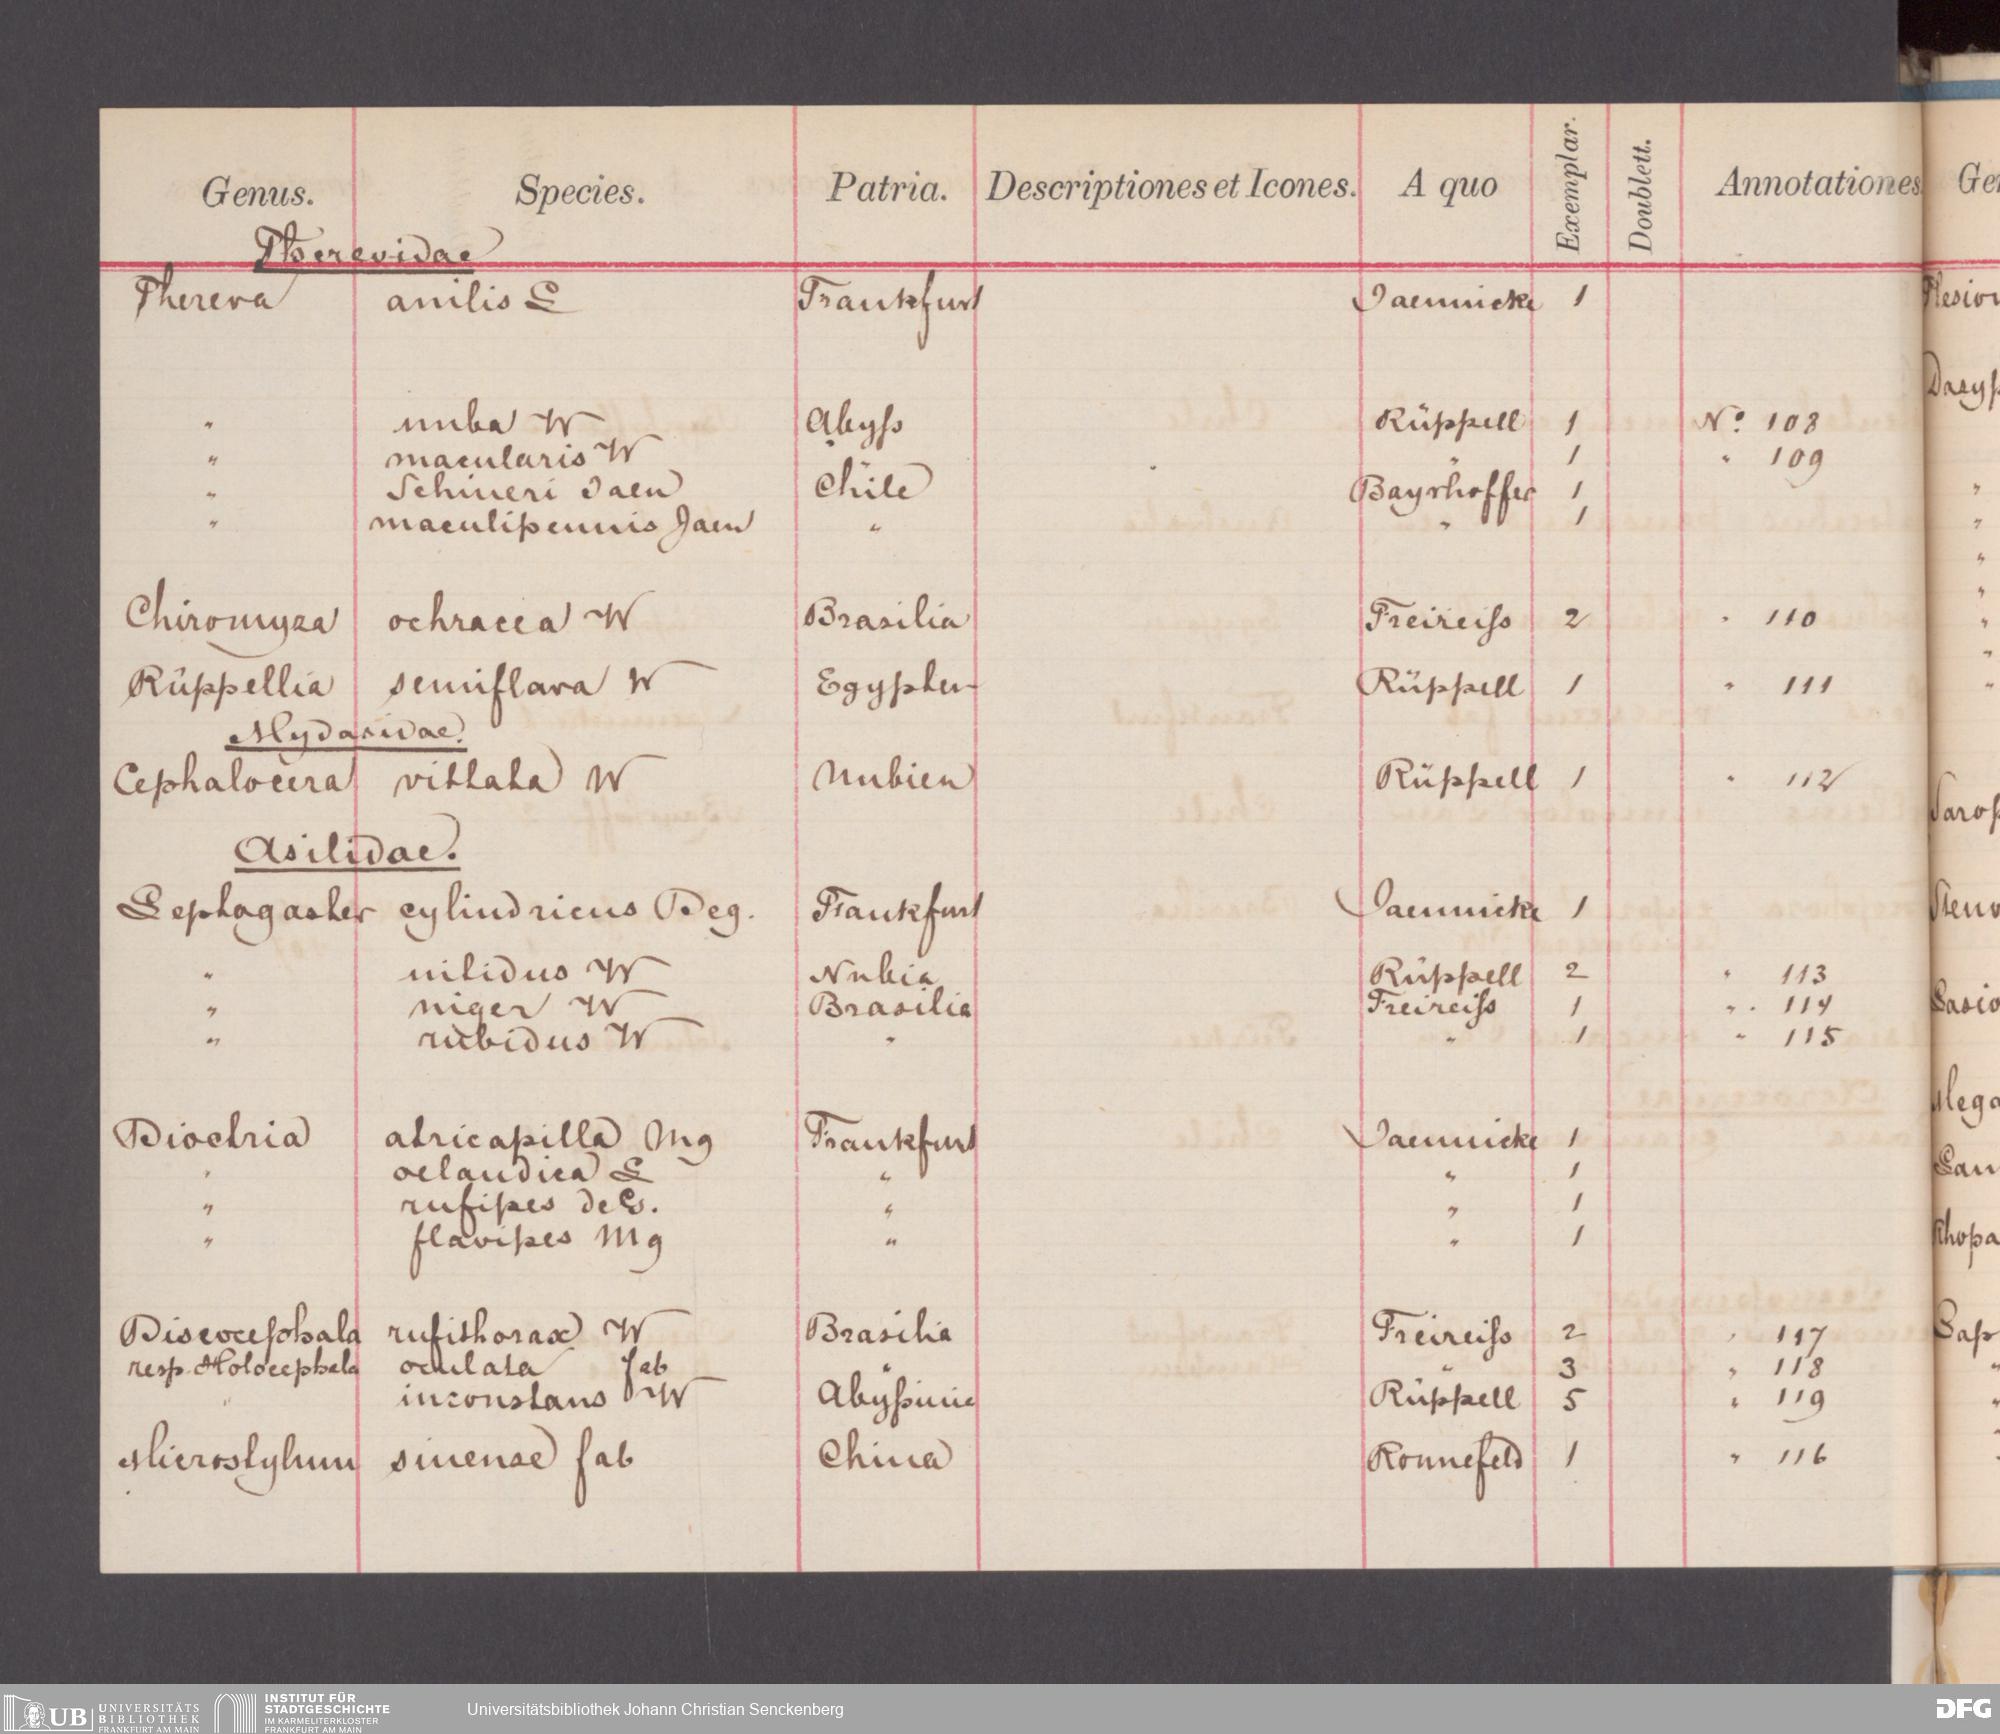 Genus. Species. Patria. Descriptiones et Icones. A quo Exemplar. Doublett. Annotationes Ge
Therevidae
Thereva anilis L Frankfurt Jaennicke 1
" nuba W Abyss Rüppell 1 No. 108
" macularis W " " 1 " 109
" Schineri Jaen Chile Bayrhoffer 1
" maculipennis Jaen " " 1
Chiromyza ochracea W Brasilia Freireiss 2 " 110
Rüppellia semiflava W Egypten Rüppell 1 " 111
Mydasidae.
Cephalocera vittata W Nubien Rüppell 1 " 112
Asilidae.
Leptogaster cylindricus Deg. Frankfurt Jaennicke 1
" nitidus W Nubia Rüppell 2 " 113
" niger W Brasilia Freireiss 1 " 114
" rubidus W " " 1 " 115
Dioctria atricapilla Mg Frankfurt Jaennicke 1
" oelandica L " " 1
" rufipes deG. " " 1
" flavipes Mg " " 1
Discocephala rufithorax W Brasilia Freireiss 2 " 117
resp. Holocephala oculata fab " " 3 " 118
" inconstans W Abyssinie Rüppell 5 " 119
Microstylum sinense fab China Ronnefeld 1 " 116
UB UNIVERSITÄTS BIBLIOTHEK FRANKFURT AM MAIN
INSTITUT FÜR STADTGESCHICHTE IM KARMELITERKLOSTER FRANKFURT AM MAIN
Universitätsbibliothek Johann Christian Senckenberg
DFG